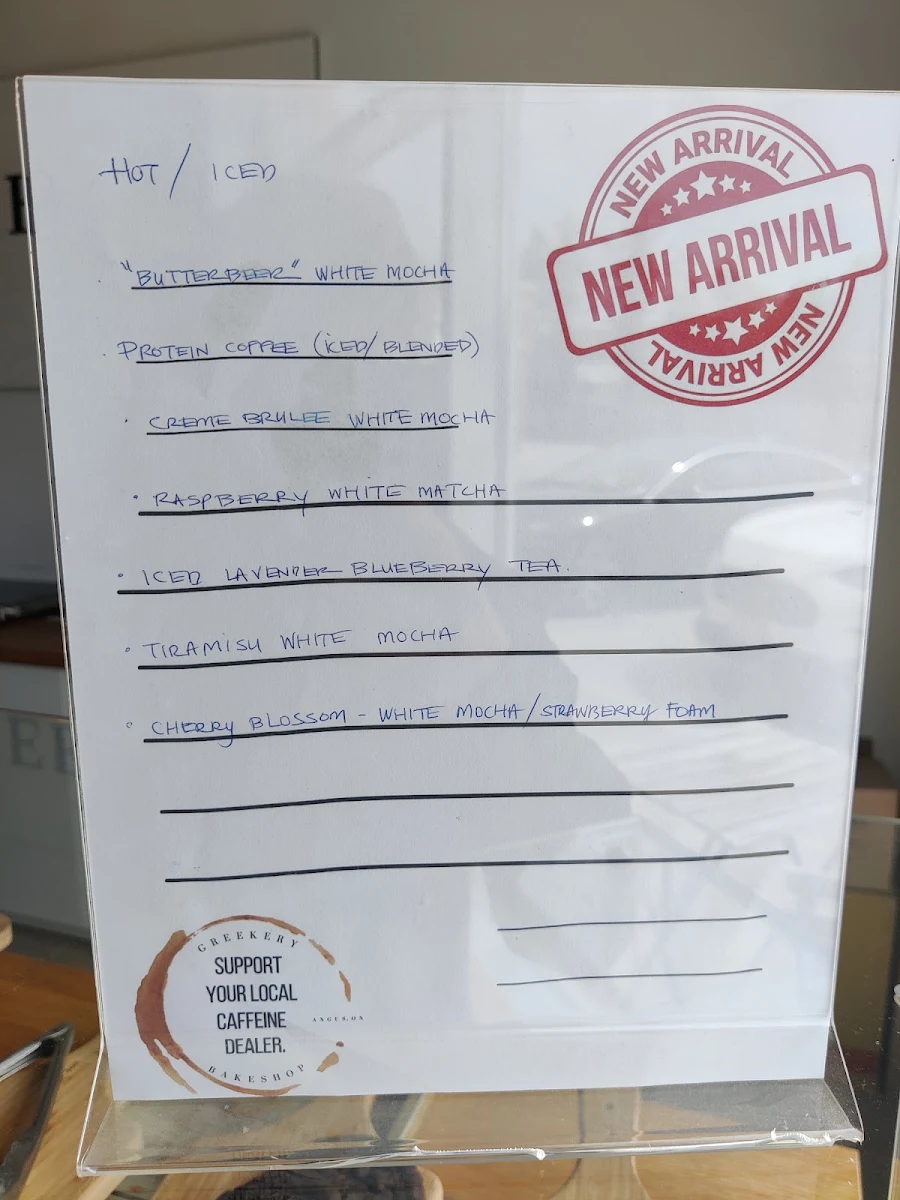 HOT / ICED
NEW ARRIVAL
NEW ARRIVAL
NEW ARRIVAL
"BUTTERBEER" WHITE MOCHA
PROTEIN COFFEE (ICED/BLENDED)
CREME BRULEE WHITE MOCHA
RASPBERRY WHITE MATCHA
ICED LAVENDER BLUEBERRY TEA.
TIRAMISU WHITE MOCHA
CHERRY BLOSSOM - WHITE MOCHA/STRAWBERRY FOAM
GREEKERY
SUPPORT
YOUR LOCAL
CAFFEINE
DEALER.
ANGUS, ON
BAKESHOP